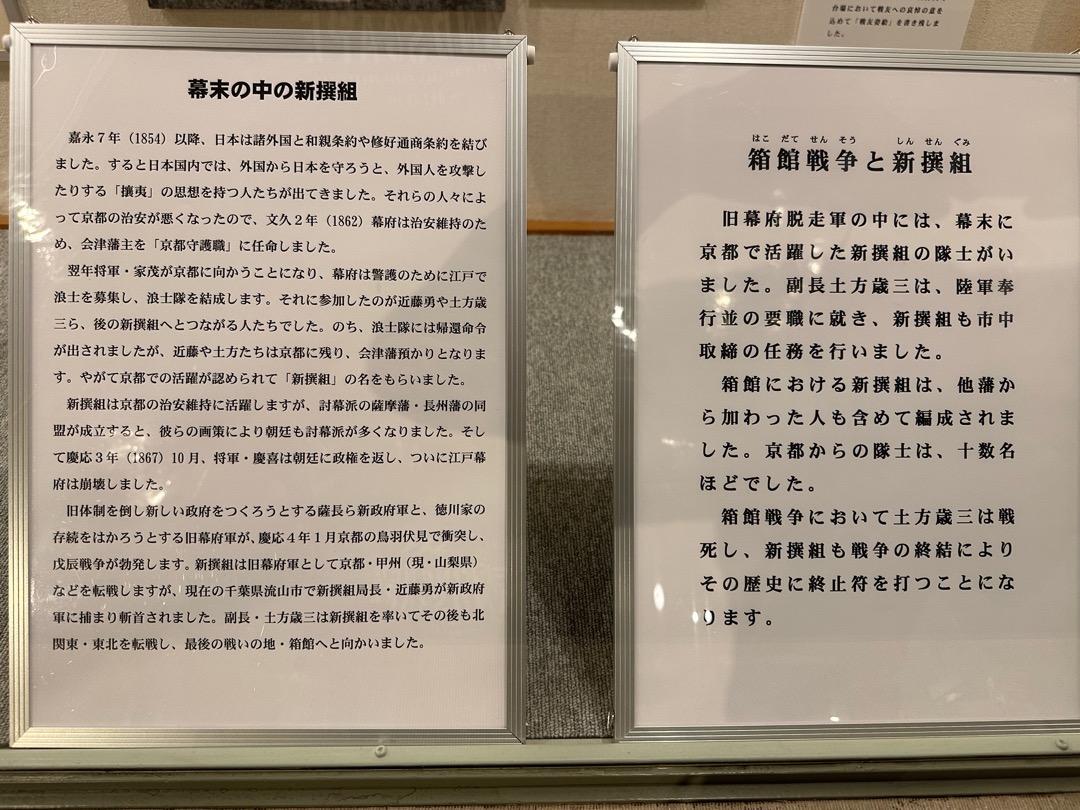 台場において戦友への哀悼の意を
込めて「戦友姿絵」を書き残しま
した。
幕末の中の新撰組
嘉永７年（1854）以降、日本は諸外国と和親条約や修好通商条約を結び
ました。すると日本国内では、外国から日本を守ろうと、外国人を攻撃し
たりする「攘夷」の思想を持つ人たちが出てきました。それらの人々によ
って京都の治安が悪くなったので、文久２年（1862）幕府は治安維持のた
め、会津藩主を「京都守護職」に任命しました。
翌年将軍・家茂が京都に向かうことになり、幕府は警護のために江戸で
浪士を募集し、浪士隊を結成します。それに参加したのが近藤勇や土方歳
三ら、後の新撰組へとつながる人たちでした。のち、浪士隊には帰還命令
が出されましたが、近藤や土方たちは京都に残り、会津藩預かりとなりま
す。やがて京都での活躍が認められて「新撰組」の名をもらいました。
新撰組は京都の治安維持に活躍しますが、討幕派の薩摩藩・長州藩の同
盟が成立すると、彼らの画策により朝廷も討幕派が多くなりました。そし
て慶応３年（1867）10月、将軍・慶喜は朝廷に政権を返し、ついに江戸幕
府は崩壊しました。
旧体制を倒し新しい政府をつくろうとする薩長ら新政府軍と、徳川家の
存続をはかろうとする旧幕府軍が、慶応４年１月京都の鳥羽伏見で衝突し、
戊辰戦争が勃発します。新撰組は旧幕府軍として京都・甲州（現・山梨県）
などを転戦しますが、現在の千葉県流山市で新撰組局長・近藤勇が新政府
軍に捕まり斬首されました。副長・土方歳三は新撰組を率いてその後も北
関東・東北を転戦し、最後の戦いの地・箱館へと向かいました。
はこ だて せん そう しん せん ぐみ
箱館戦争と新撰組
旧幕府脱走軍の中には、幕末に
京都で活躍した新撰組の隊士がい
ました。副長土方歳三は、陸軍奉
行並の要職に就き、新撰組も市中
取締の任務を行いました。
箱館における新撰組は、他藩か
ら加わった人も含めて編成されま
した。京都からの隊士は、十数名
ほどでした。
箱館戦争において土方歳三は戦
死し、新撰組も戦争の終結により
その歴史に終止符を打つことにな
ります。